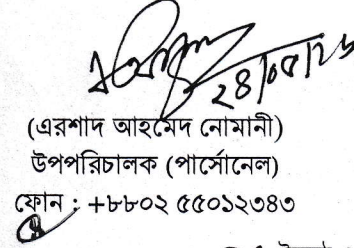 (এরশাদ আহমেদ নোমানী)
উপপরিচালক (পার্সোনেল)
ফোন : +৮৮০২ ৫৫০১২৩৪৩